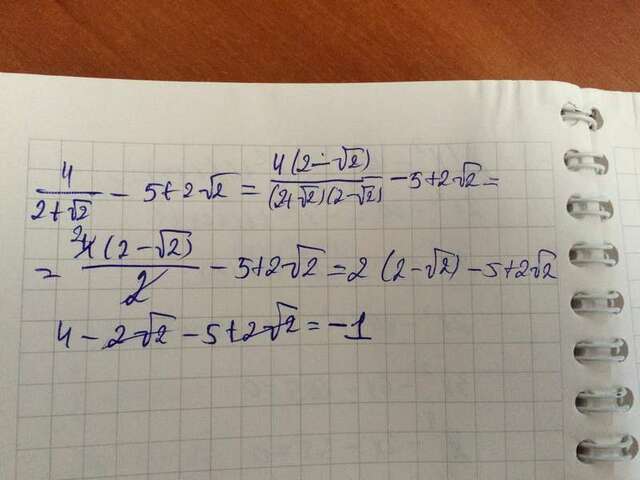 4/(2+√2) - 5+2√2 = 4(2-√2)/((2+√2)(2-√2)) - 5+2√2 =
= 4(2-√2)/2 2 - 5+2√2 = 2 (2-√2) - 5+2√2
4 - 2√2 - 5+2√2 = -1